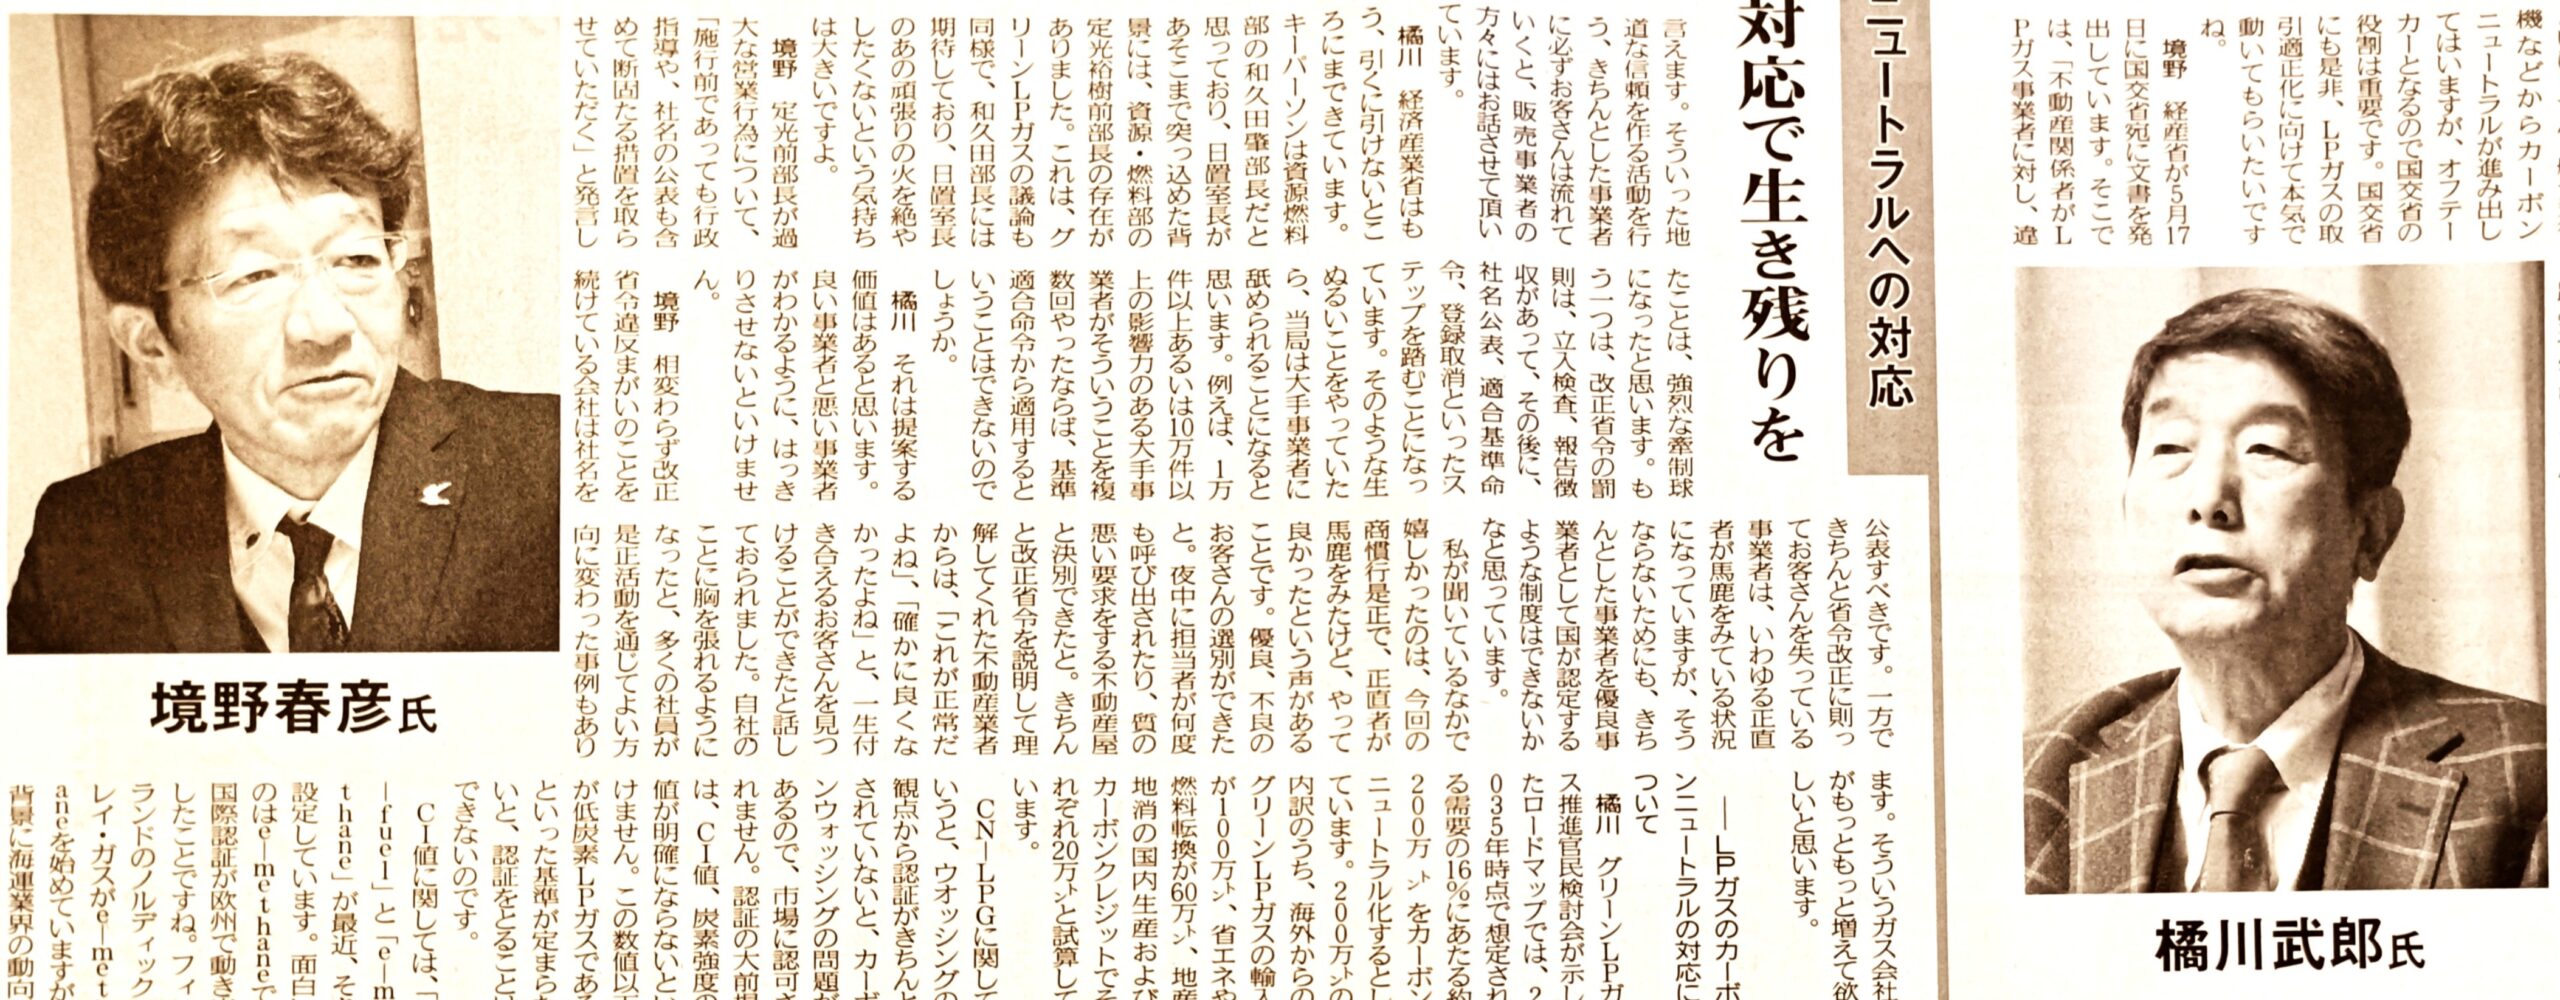 機などからカーボン
ニュートラルが進み出し
てはいますが、オフテー
カーとなるので国交省の
役割は重要です。国交省
にも是非、LPガスの取
引適正化に向けて本気で
動いてもらいたいです
ね。
境野　経産省が5月17
日に国交省宛に文書を発
出しています。そこで
は、「不動産関係者がL
Pガス事業者に対し、違
橘川武郎氏
ニュートラルへの対応
対応で生き残りを
言えます。そういった地
道な信頼を作る活動を行
う、きちんとした事業者
に必ずお客さんは流れて
いくと、販売事業者の
方々にはお話させて頂い
ています。
橘川　経済産業省はも
う、引くに引けないとこ
ろにまできています。
キーパーソンは資源燃料
部の和久田肇部長だと
思っており、日置室長が
あそこまで突っ込めた背
景には、資源・燃料部の
定光裕樹前部長の存在が
ありました。これは、グ
リーンLPガスの議論も
同様で、和久田部長には
期待しており、日置室長
のあの頑張りの火を絶や
したくないという気持ち
は大きいですよ。
境野　定光前部長が過
大な営業行為について、
「施行前であっても行政
指導や、社名の公表も含
めて断固たる措置を取ら
せていただく」と発言し
たことは、強烈な牽制球
になったと思います。も
う一つは、改正省令の罰
則は、立入検査、報告徴
収があって、その後に、
社名公表、適合基準命
令、登録取消といったス
テップを踏むことになっ
ています。そのような生
ぬるいことをやっていた
ら、当局は大手事業者に
舐められることになると
思います。例えば、1万
件以上あるいは10万件以
上の影響力のある大手事
業者がそういうことを複
数回やったならば、基準
適合命令から適用すると
いうことはできないので
しょうか。
橘川　それは提案する
価値はあると思います。
良い事業者と悪い事業者
がわかるように、はっき
りさせないといけませ
ん。
境野　相変わらず改正
省令違反まがいのことを
続けている会社は社名を
公表すべきです。一方で
きちんと省令改正に則っ
てお客さんを失っている
事業者は、いわゆる正直
者が馬鹿をみている状況
になっていますが、そう
ならないためにも、きち
んとした事業者を優良事
業者として国が認定する
ような制度はできないか
なと思っています。
私が聞いているなかで
嬉しかったのは、今回の
商慣行是正で、正直者が
馬鹿をみたけど、やって
良かったという声がある
ことです。優良、不良の
お客さんの選別ができた
と。夜中に担当者が何度
も呼び出されたり、質の
悪い要求をする不動産屋
と決別できたと。きちん
と改正省令を説明して理
解してくれた不動産業者
からは、「これが正常だ
よね」、「確かに良くな
かったよね」と、一生付
き合えるお客さんを見つ
けることができたと話し
ておられました。自社の
ことに胸を張れるように
なったと、多くの社員が
是正活動を通じてよい方
向に変わった事例もあり
ます。そういうガス会社
がもっともっと増えて欲
しいと思います。
――LPガスのカーボ
ンニュートラルの対応に
ついて
橘川　グリーンLPガ
ス推進官民検討会が示し
たロードマップでは、2
035年時点で想定され
る需要の16％にあたる約
200万㌧をカーボン
ニュートラル化するとし
ています。200万㌧の
内訳のうち、海外からの
グリーンLPガスの輸入
が100万㌧、省エネや
燃料転換が60万㌧、地産
地消の国内生産および
カーボンクレジットでそ
れぞれ20万㌧と試算して
います。
CN―LPGに関して
いうと、ウオッシングの
観点から認証がきちんと
されていないと、カーボ
ンウォッシングの問題が
あるので、市場に認可さ
れません。認証の大前提
は、CI値、炭素強度の
値が明確にならないとい
けません。この数値以下
が低炭素LPガスである
といった基準が定まらな
いと、認証をとることは
できないのです。
CI値に関しては、「e
―fuel」と「e―me
thane」が最近、
設定しています。面白い
のはe―methaneで
国際認証が欧州で動き
したことですね。フィン
ランドのノルディック
レイ・ガスがe―met
aneを始めていますが
背景に海運業界の動向
境野春彦氏